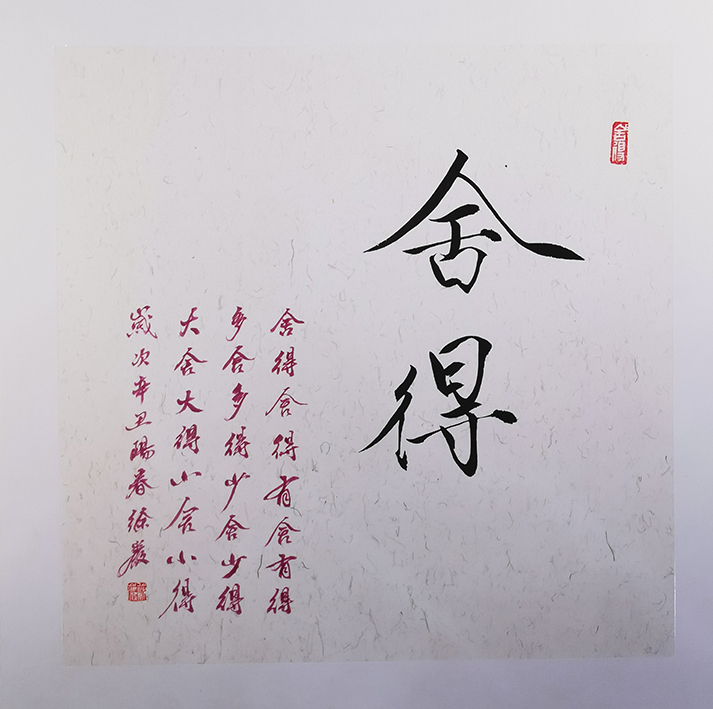 舍得
舍得舍得有舍有得
多舍多得少舍少得
大舍大得小舍小得
歲次辛丑陽春徐嚴
舍得